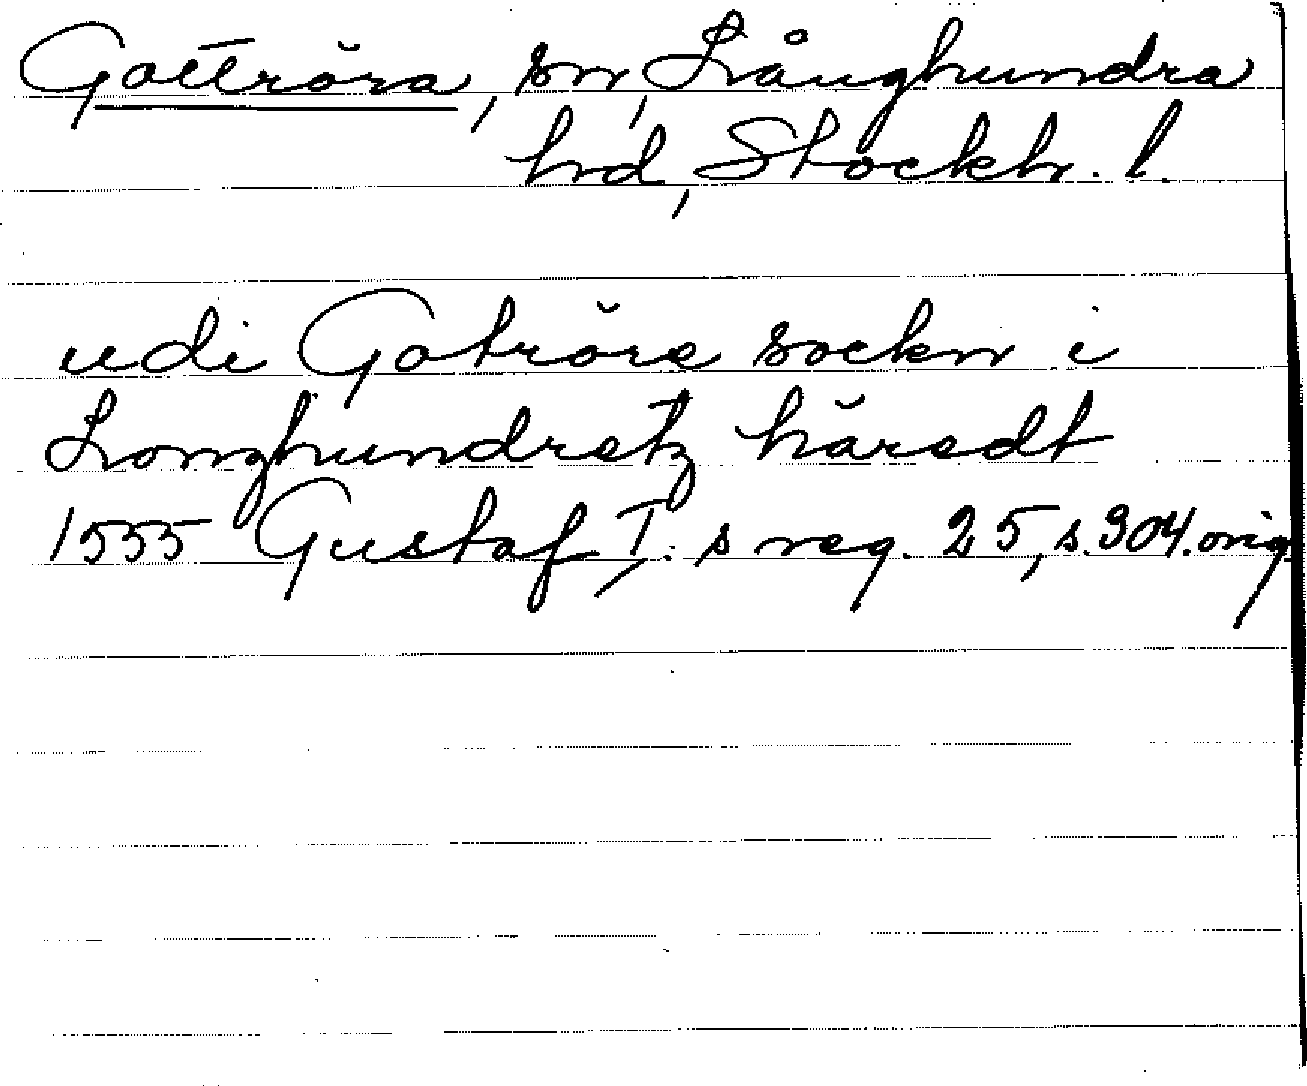 Gottröra, sn, Långhundra
hrd, Stockh. l.
udi Gotröre sockn i
Longhundretz häredt
1555 Gustaf I:s reg. 25, s. 304. orig